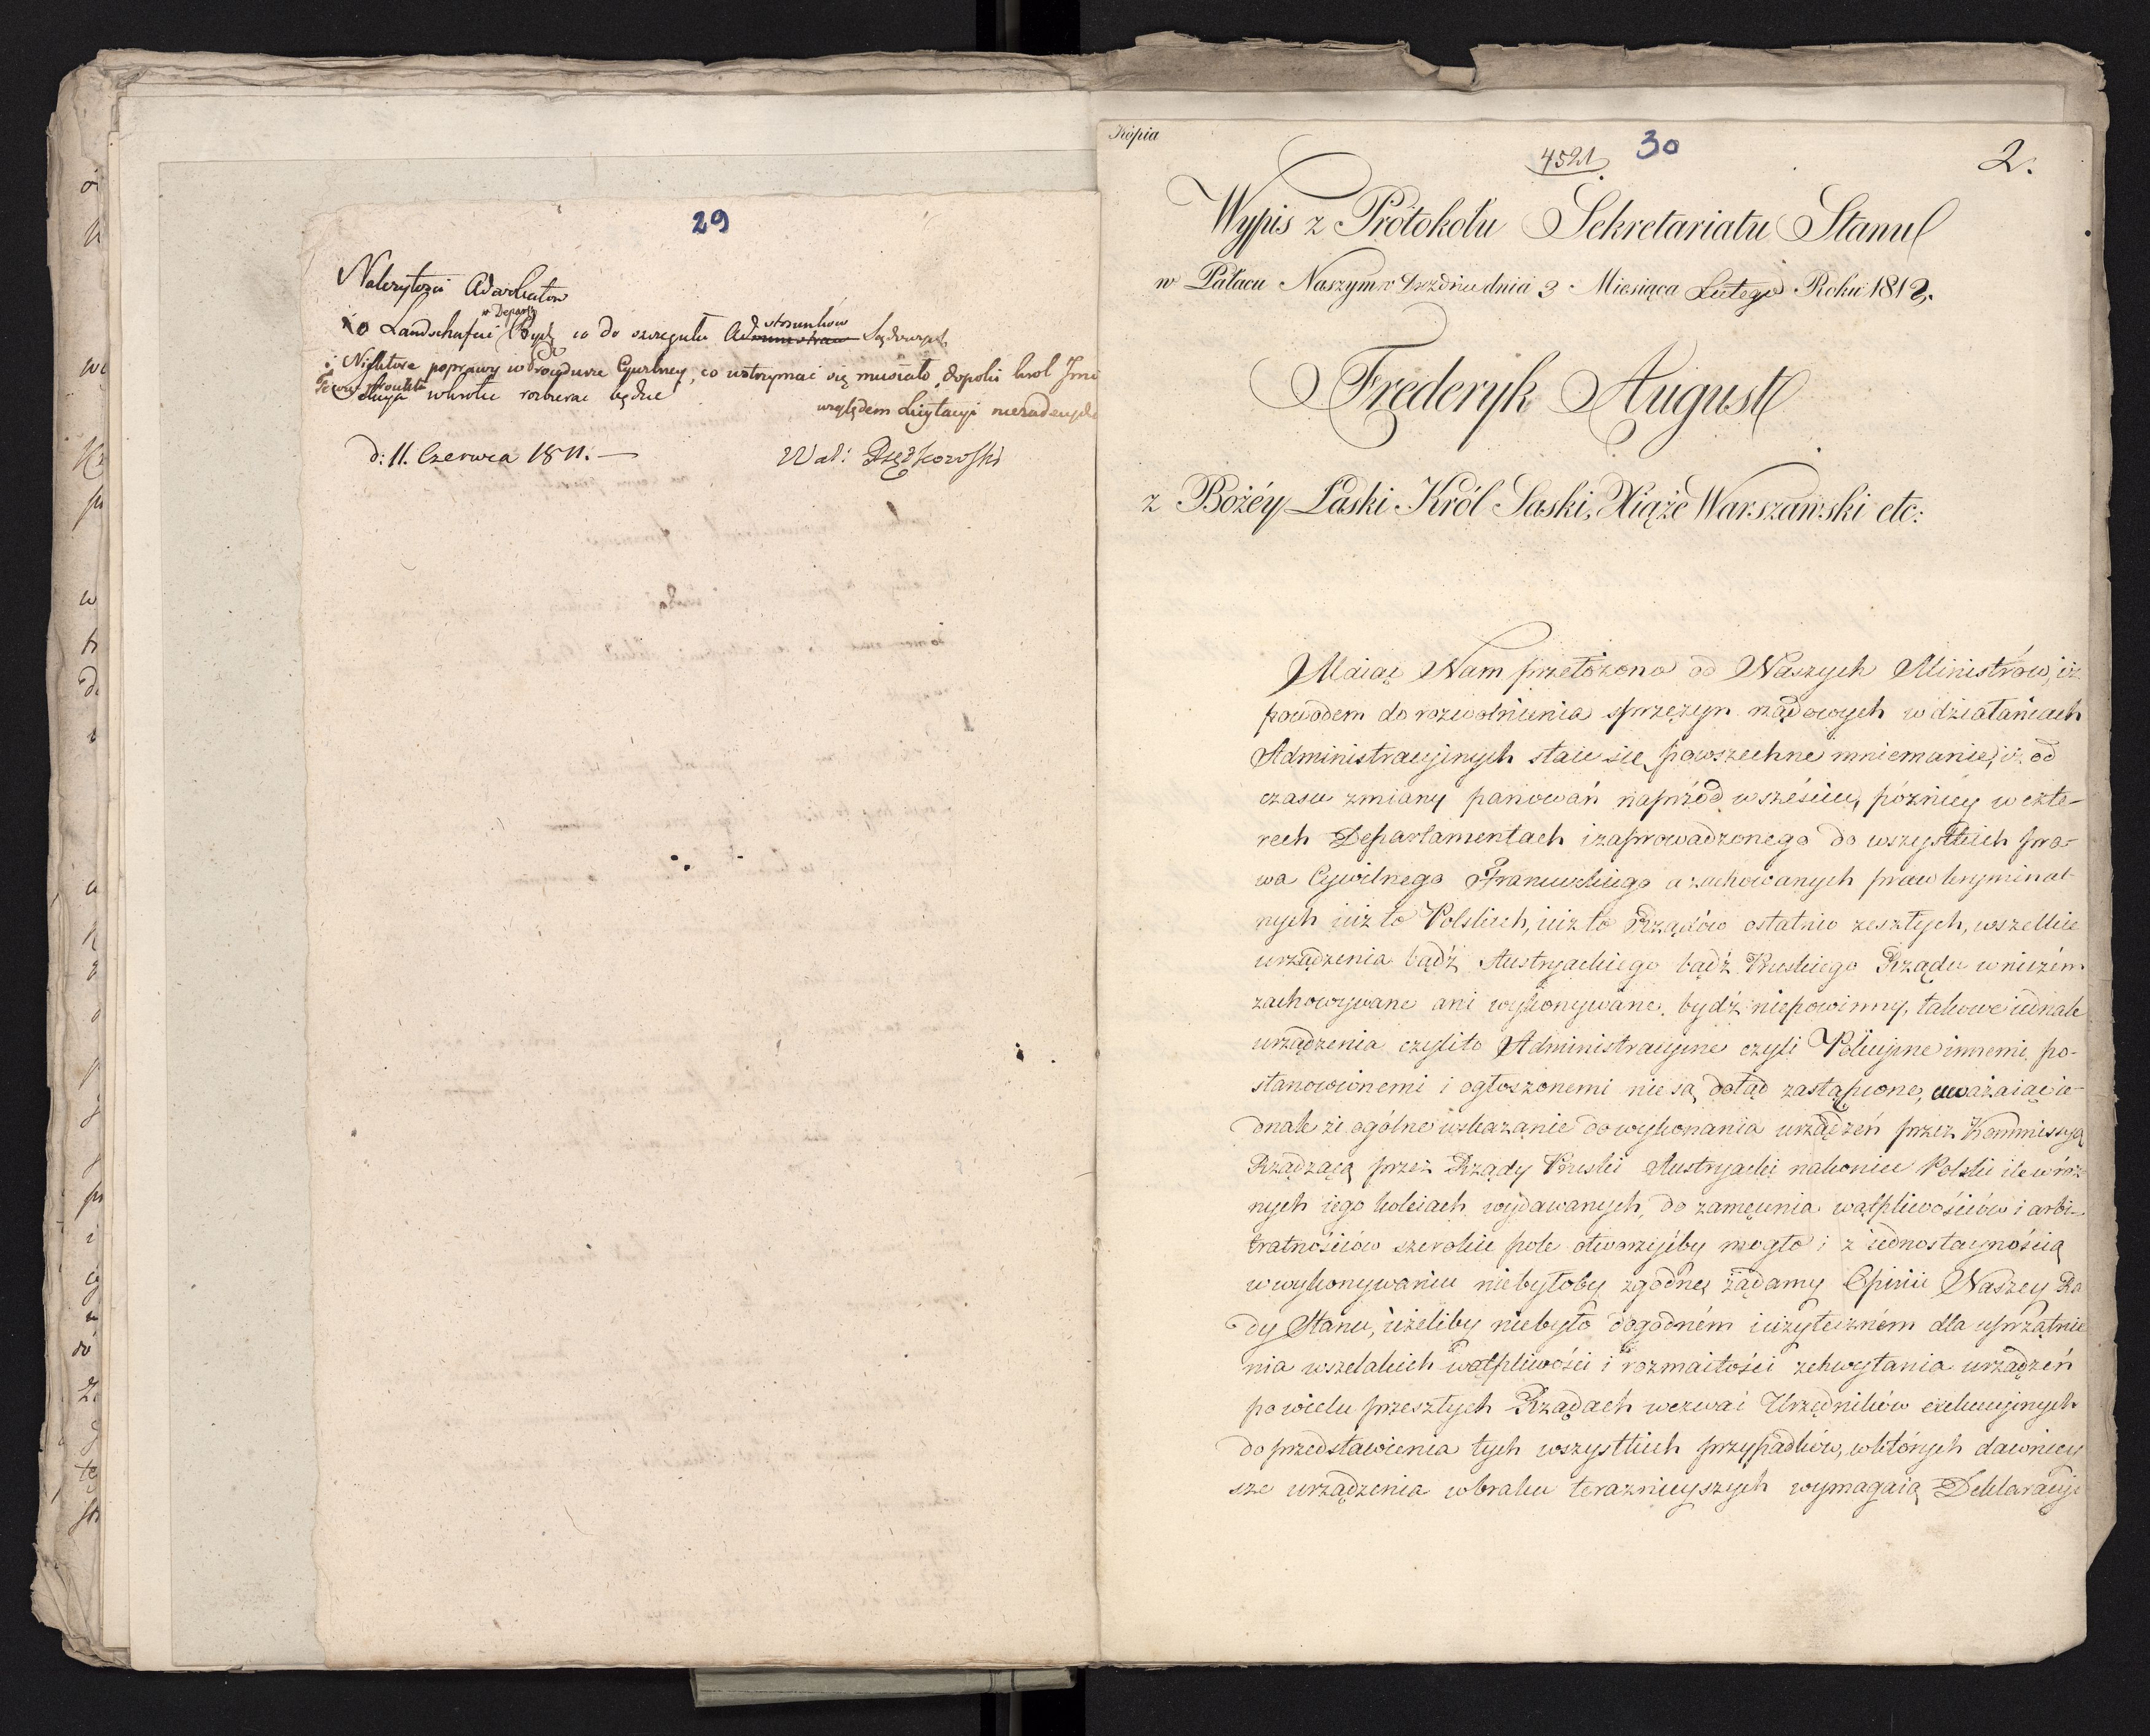 29
Należytości Adwokatów
w Depart:
i o Landschafcie Bydg co do szczegułu stosunków Sądowych
i Niektóre poprawy w Procedurze Cywilney, co wstrzymać się musiało, dopóki król Jmć
względem Licytacyi
wkrótce rozbierać będzie
d: 11. Czerwca 1811. —
Wal:
Kopia
4521
30
2.
Wypis z Protokołu Sekretariatu Stanu
w Pałacu Naszym w Dreźnie dnia 3 Miesiąca Lutego Roku 1812.
Frederyk August
z Bożéy Łaski Król Saski, Xiąże Warszawski etc:
Maiąc Nam przełożono od Naszych Ministrów, iż
powodem do rozwolnienia sprzężyn rządowych w działaniach
Administracyinych staie się powszechne mniemanie, iż od
czasu zmiany panowań naprzód w sześciu, późniey w czte-
rech Departamentach i zaprowadzonego do wszystkich pra-
wa Cywilnego Francuzkiego a zachowanych praw kryminal-
nych iuż to Polskich, iuż to Rządów ostatnio zeszłych, wszelkie
urządzenia bądź Austryackiego bądź Pruskiego Rządu w niczém
zachowywane ani wykonywane bydź niepowinny, takowe iednak
urządzenia czyli to Administracyine czyli Policyine innemi po-
stanowionemi i ogłoszonemi nie są dotąd zastąpione, uważaiąc ie-
dnak że ogólne wskazanie do wykonania urządzeń przez Kommissyą
Rządzącą przez Rządy Pruski Austryacki nakoniec Polski ile w róż-
nych iego koleiach wydawanych, do zamęcenia wątpliwościów i arbi-
tralnościów szerokie pole otworzyćby mogło i z iednostaynością
w wykonywaniu niebyłoby zgodne, żądamy Opinii Naszey Ra
dy Stanu, ieżeliby niebyło dogodném i użyteczném dla uprzątnie
nia wszelakich wątpliwości i rozmaitości zchwytania urządzeń
po wielu przeszłych Rządach wezwać Urzędników exekucyinych
do przedstawienia tych wszystkich przypadków, w których dawniey
sze urządzenia w braku teraznieyszych wymagaią Deklaracyi